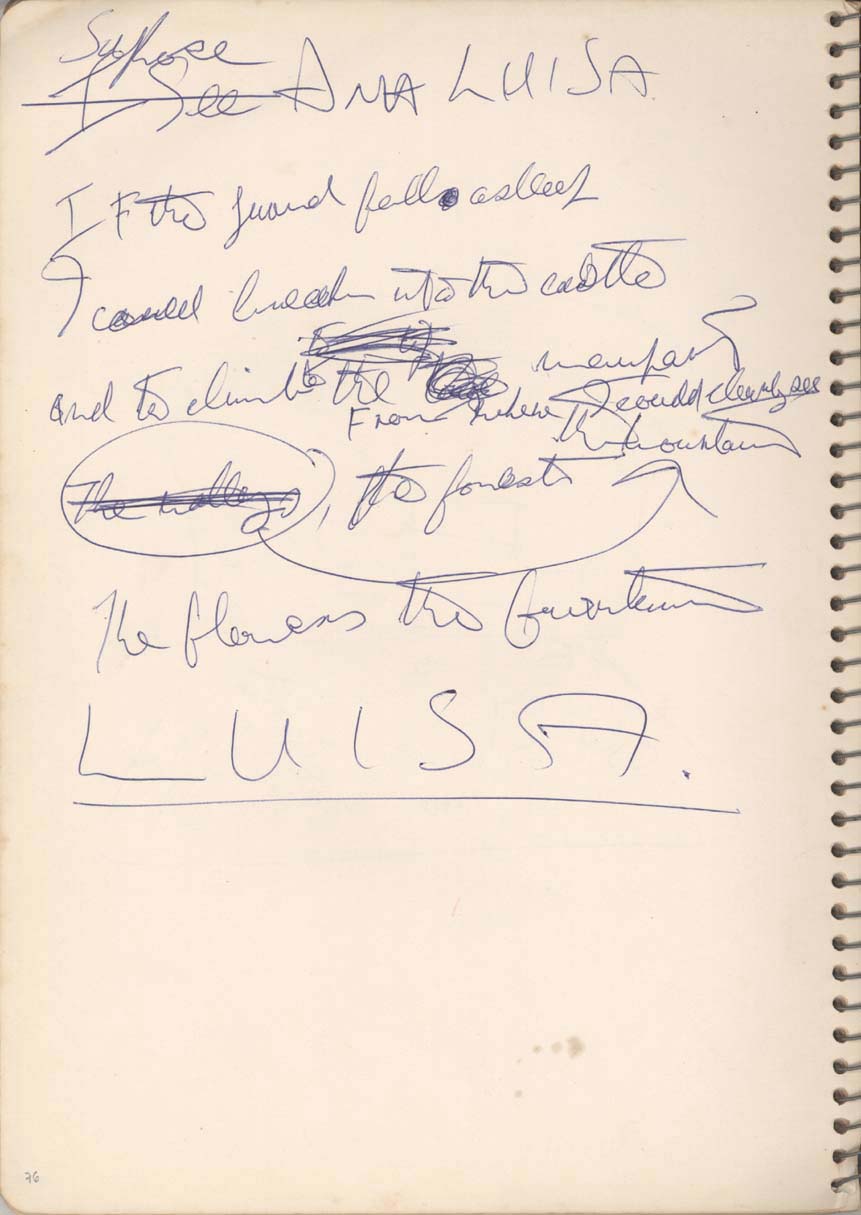 Supose
I See ANA LUISA
IF the guard falls asleep
I could break into the castle
and to climb to the rampart
From where I could clearly see
the mountain
The valleys, the forest
The flowers the fountain
LUISA.
76